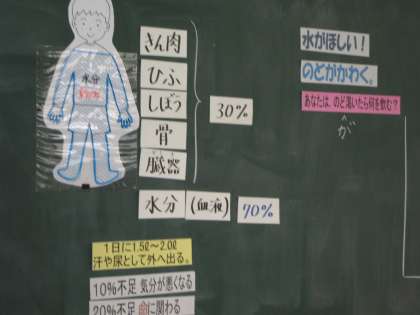 水分
きん肉
ひふ
しぼう
骨
臓器
30%
水分 (血液) 70%
水がほしい！
のどがかわく。
あなたは、のど渇いたら何を飲む？
が
1日に1.5ℓ～2.0ℓ
汗や尿として外へ出る。
10%不足 気分が悪くなる
20%不足 命に関わる